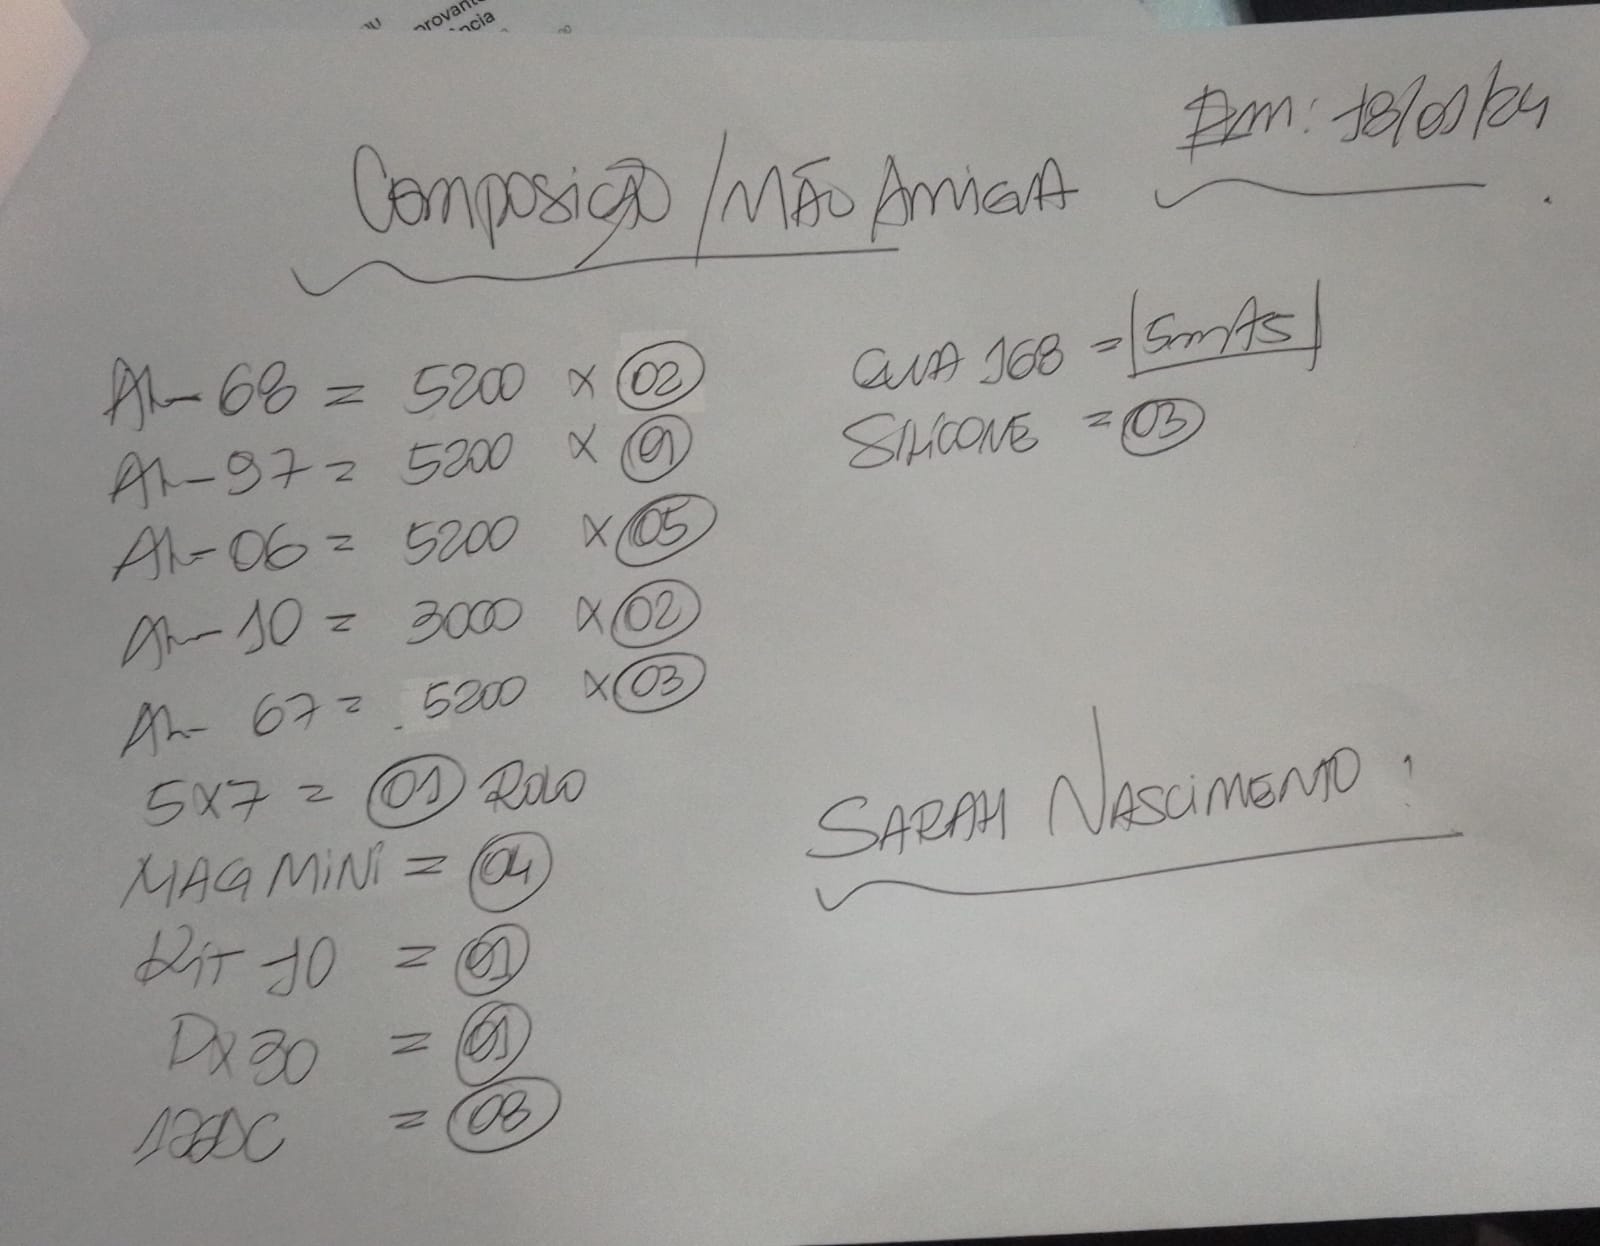 provant
ncia
Em: 18/01/24
Composição/MÃO AMIGA
AL-68 = 5200 x 02
AL-97 = 5200 x 01
AL-06 = 5200 x 05
AL-10 = 3000 x 02
AL-67 = 5200 x 03
5x7 = 01 ROLO
MAG MINI = 04
KIT 10 = 01
DX30 = 01
= 08
168 = 5mts
SILICONE = 03
SARAH NASCIMENTO